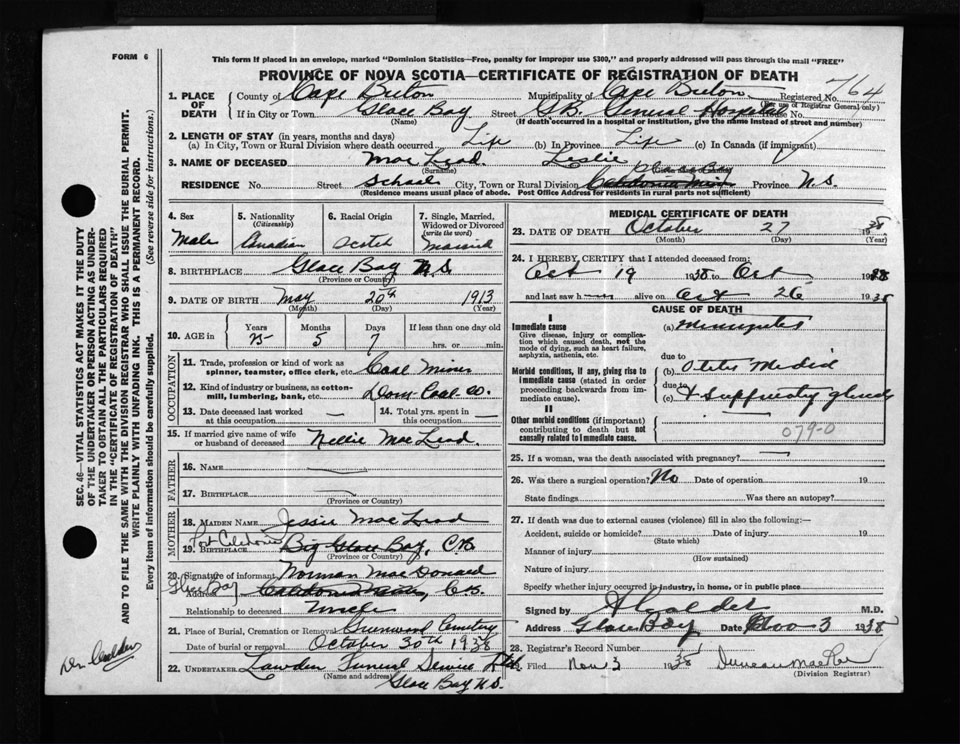 FORM 6
This form if placed in an envelope, marked "Dominion Statistics—Free, penalty for improper use $300," and properly addressed will pass through the mail "FREE"
PROVINCE OF NOVA SCOTIA—CERTIFICATE OF REGISTRATION OF DEATH
1. PLACE OF DEATH County of Cape Breton Municipality of Cape Breton Registered No. 764
(For use of Registrar General only)
If in City or Town Glace Bay Street C.B. General Hospital House No.
(Name) (If death occurred in a hospital or institution, give the name instead of street and number)
2. LENGTH OF STAY (in years, months and days)
(a) In City, Town or Rural Division where death occurred Life (b) In Province Life (c) In Canada (if immigrant)
3. NAME OF DECEASED MacLeod Leslie
(Surname)
RESIDENCE No. Street School City, Town or Rural Division Province N.S.
(Residence means usual place of abode. Post Office Address for residents in rural parts not sufficient)
4. Sex Male
5. Nationality (Citizenship) Canadian
6. Racial Origin Scotch
7. Single, Married, Widowed or Divorced (write the word) Married
8. BIRTHPLACE Glace Bay N.S.
(Province or Country)
9. DATE OF BIRTH May 20th 1913
(Month) (Day) (Year)
10. AGE in Years Months Days If less than one day old
25 5 7 hrs. or min.
OCCUPATION
11. Trade, profession or kind of work as spinner, teamster, office clerk, etc. Coal Miner
12. Kind of industry or business, as cotton-mill, lumbering, bank, etc. Dom. Coal Co.
13. Date deceased last worked at this occupation
14. Total yrs. spent in this occupation
15. If married give name of wife or husband of deceased Nellie MacLeod.
FATHER
16. NAME
17. BIRTHPLACE
(Province or Country)
MOTHER
18. MAIDEN NAME Jessie MacLeod
19. BIRTHPLACE Port Caledonia Big Glace Bay, C.B.
(Province or Country)
20. Signature of informant Norman MacDonald
Address Glace Bay C.B.
Relationship to deceased Uncle
21. Place of Burial, Cremation or Removal Greenwood Cemetery
Date of burial or removal October 30th 1938
22. UNDERTAKER Funeral Service Ltd
(Name and address)
Glace Bay N.S.
MEDICAL CERTIFICATE OF DEATH
23. DATE OF DEATH October 27 1938
(Month) (Day) (Year)
24. I HEREBY CERTIFY that I attended deceased from:
Oct 19 1938 to Oct 1938
and last saw h alive on Oct 26 1938
CAUSE OF DEATH
I
Immediate cause (a) Meningitis
Give disease, injury or complication which caused death, not the mode of dying, such as heart failure, asphyxia, asthenia, etc.
due to
Morbid conditions, if any, giving rise to immediate cause (stated in order proceeding backwards from immediate cause). (b) Otitis Media
due to
(c) & Suppurating glands
II
Other morbid conditions (if important) contributing to death but not causally related to immediate cause.
079-0
25. If a woman, was the death associated with pregnancy?
26. Was there a surgical operation? No Date of operation 19
State findings Was there an autopsy?
27. If death was due to external causes (violence) fill in also the following:—
Accident, suicide or homicide? Date of injury 19
(State which)
Manner of injury
(How sustained)
Nature of injury
Specify whether injury occurred in industry, in home, or in public place
Signed by M.D.
Address Glace Bay Date Nov 3 1938
28. Registrar's Record Number
29. Filed Nov 3 1938 Duncan
(Division Registrar)
SEC. 46—VITAL STATISTICS ACT MAKES IT THE DUTY
OF THE UNDERTAKER OR PERSON ACTING AS UNDER-
TAKER TO OBTAIN ALL THE PARTICULARS REQUIRED
IN THE "CERTIFICATE OF REGISTRATION OF DEATH"
AND TO FILE THE SAME WITH THE DIVISION REGISTRAR WHO SHALL ISSUE THE BURIAL PERMIT.
WRITE PLAINLY WITH UNFADING INK. THIS IS A PERMANENT RECORD.
Every item of information should be carefully supplied. (See reverse side for instructions.)
Dr. Calder